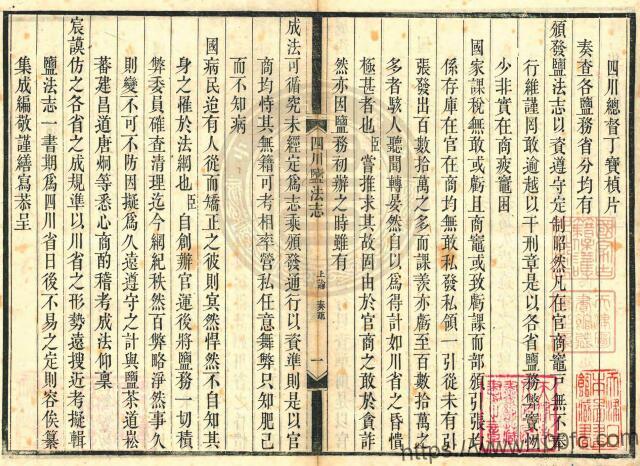 四川總督丁寶楨片
奏查各鹽務省分均有
頒發鹽法志以資遵守定制昭然凡在官商竈戶無不奉
行維謹罔敢逾越以干刑章是以各省鹽務弊竇
少非實在商疲竈困
國家課稅無敢或虧且商竈或虧課而部頒引張均
係存庫在官在商均無敢私發私領一引從未有引
張發出百數拾萬之多而課羨亦虧至百數拾萬之
多者駭人聽聞轉晏然自以為得計如川省之昏憒
極甚者也臣嘗推求其故固由於官商之敢於貪詐
然亦因鹽務初辦之時雖有
四川鹽法志
上諭 奏疏
一
成法可循究未經定為志乘頒發通行以資準則是以官
商均恃其無籍可考相率營私任意舞弊只知肥己
而不知病
國病民迨有人從而矯正之彼則冥然悍然不自知其
身之罹於法網也臣自創辦官運後將鹽務一切積
弊委員確查清理迄今綱紀秩然百弊略淨然事久
則變不可不防因擬為久遠遵守之計與鹽茶道崧
蕃建昌道唐炯等悉心商酌稽考成法仰稟
宸謨仿之各省之成規準以川省之形勢遠搜近考擬輯
鹽法志一書期為四川省日後不易之定則容俟纂
集成編敬謹繕寫恭呈